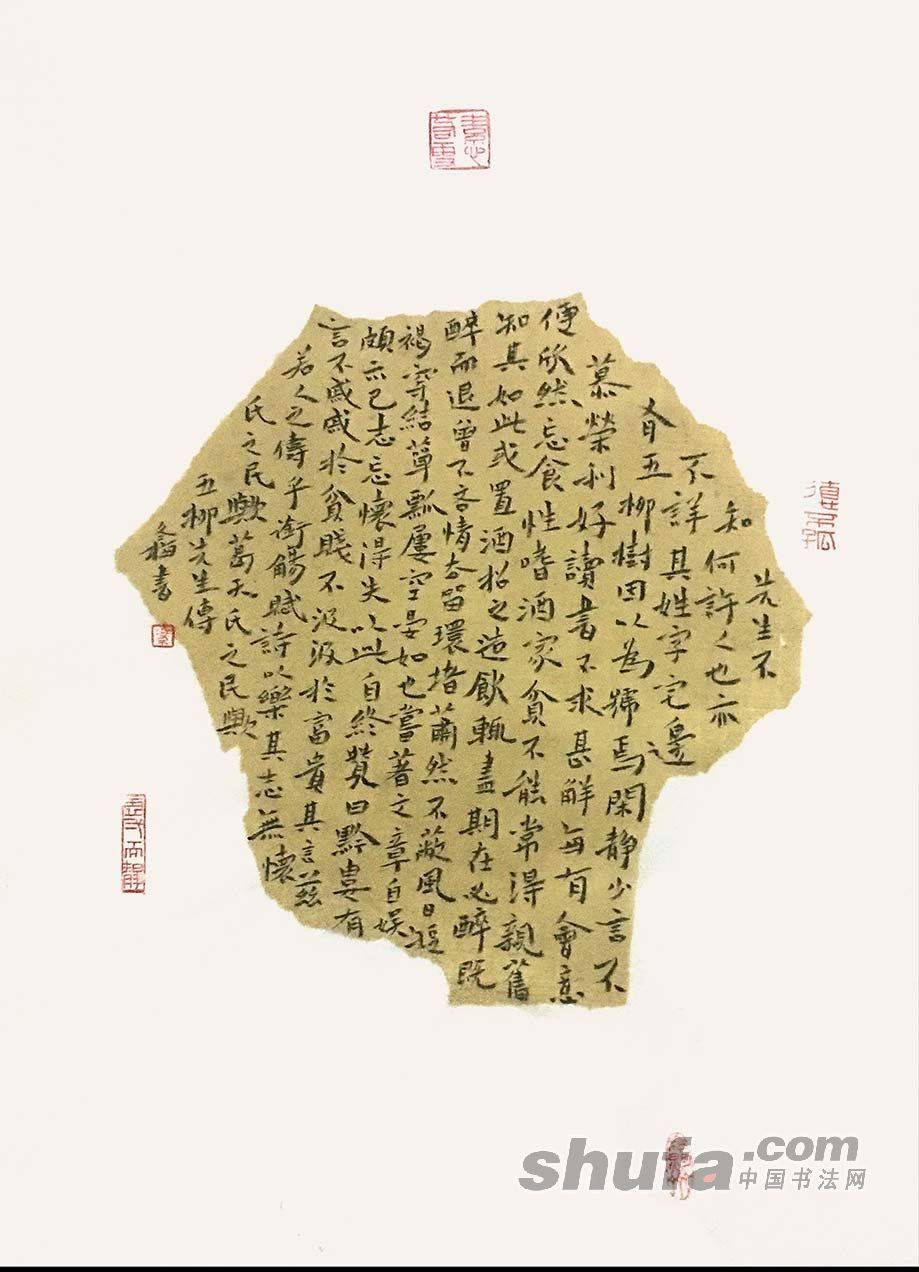 先生不
知何許人也亦
不詳其姓字宅邊
有五柳樹因以為號焉閑靜少言不
慕榮利好讀書不求甚解每有會意
便欣然忘食性嗜酒家貧不能常得親舊
知其如此或置酒招之造飲輒盡期在必醉既
醉而退曾不吝情去留環堵蕭然不蔽風日短
褐穿結簞瓢屢空晏如也嘗著文章自娛
頗示己志忘懷得失以此自終贊曰黔婁有
言不戚戚於貧賤不汲汲於富貴其言茲
若人之儔乎銜觴賦詩以樂其志無懷
氏之民歟葛天氏之民歟
五柳先生傳
書
shufa.com
中国书法网